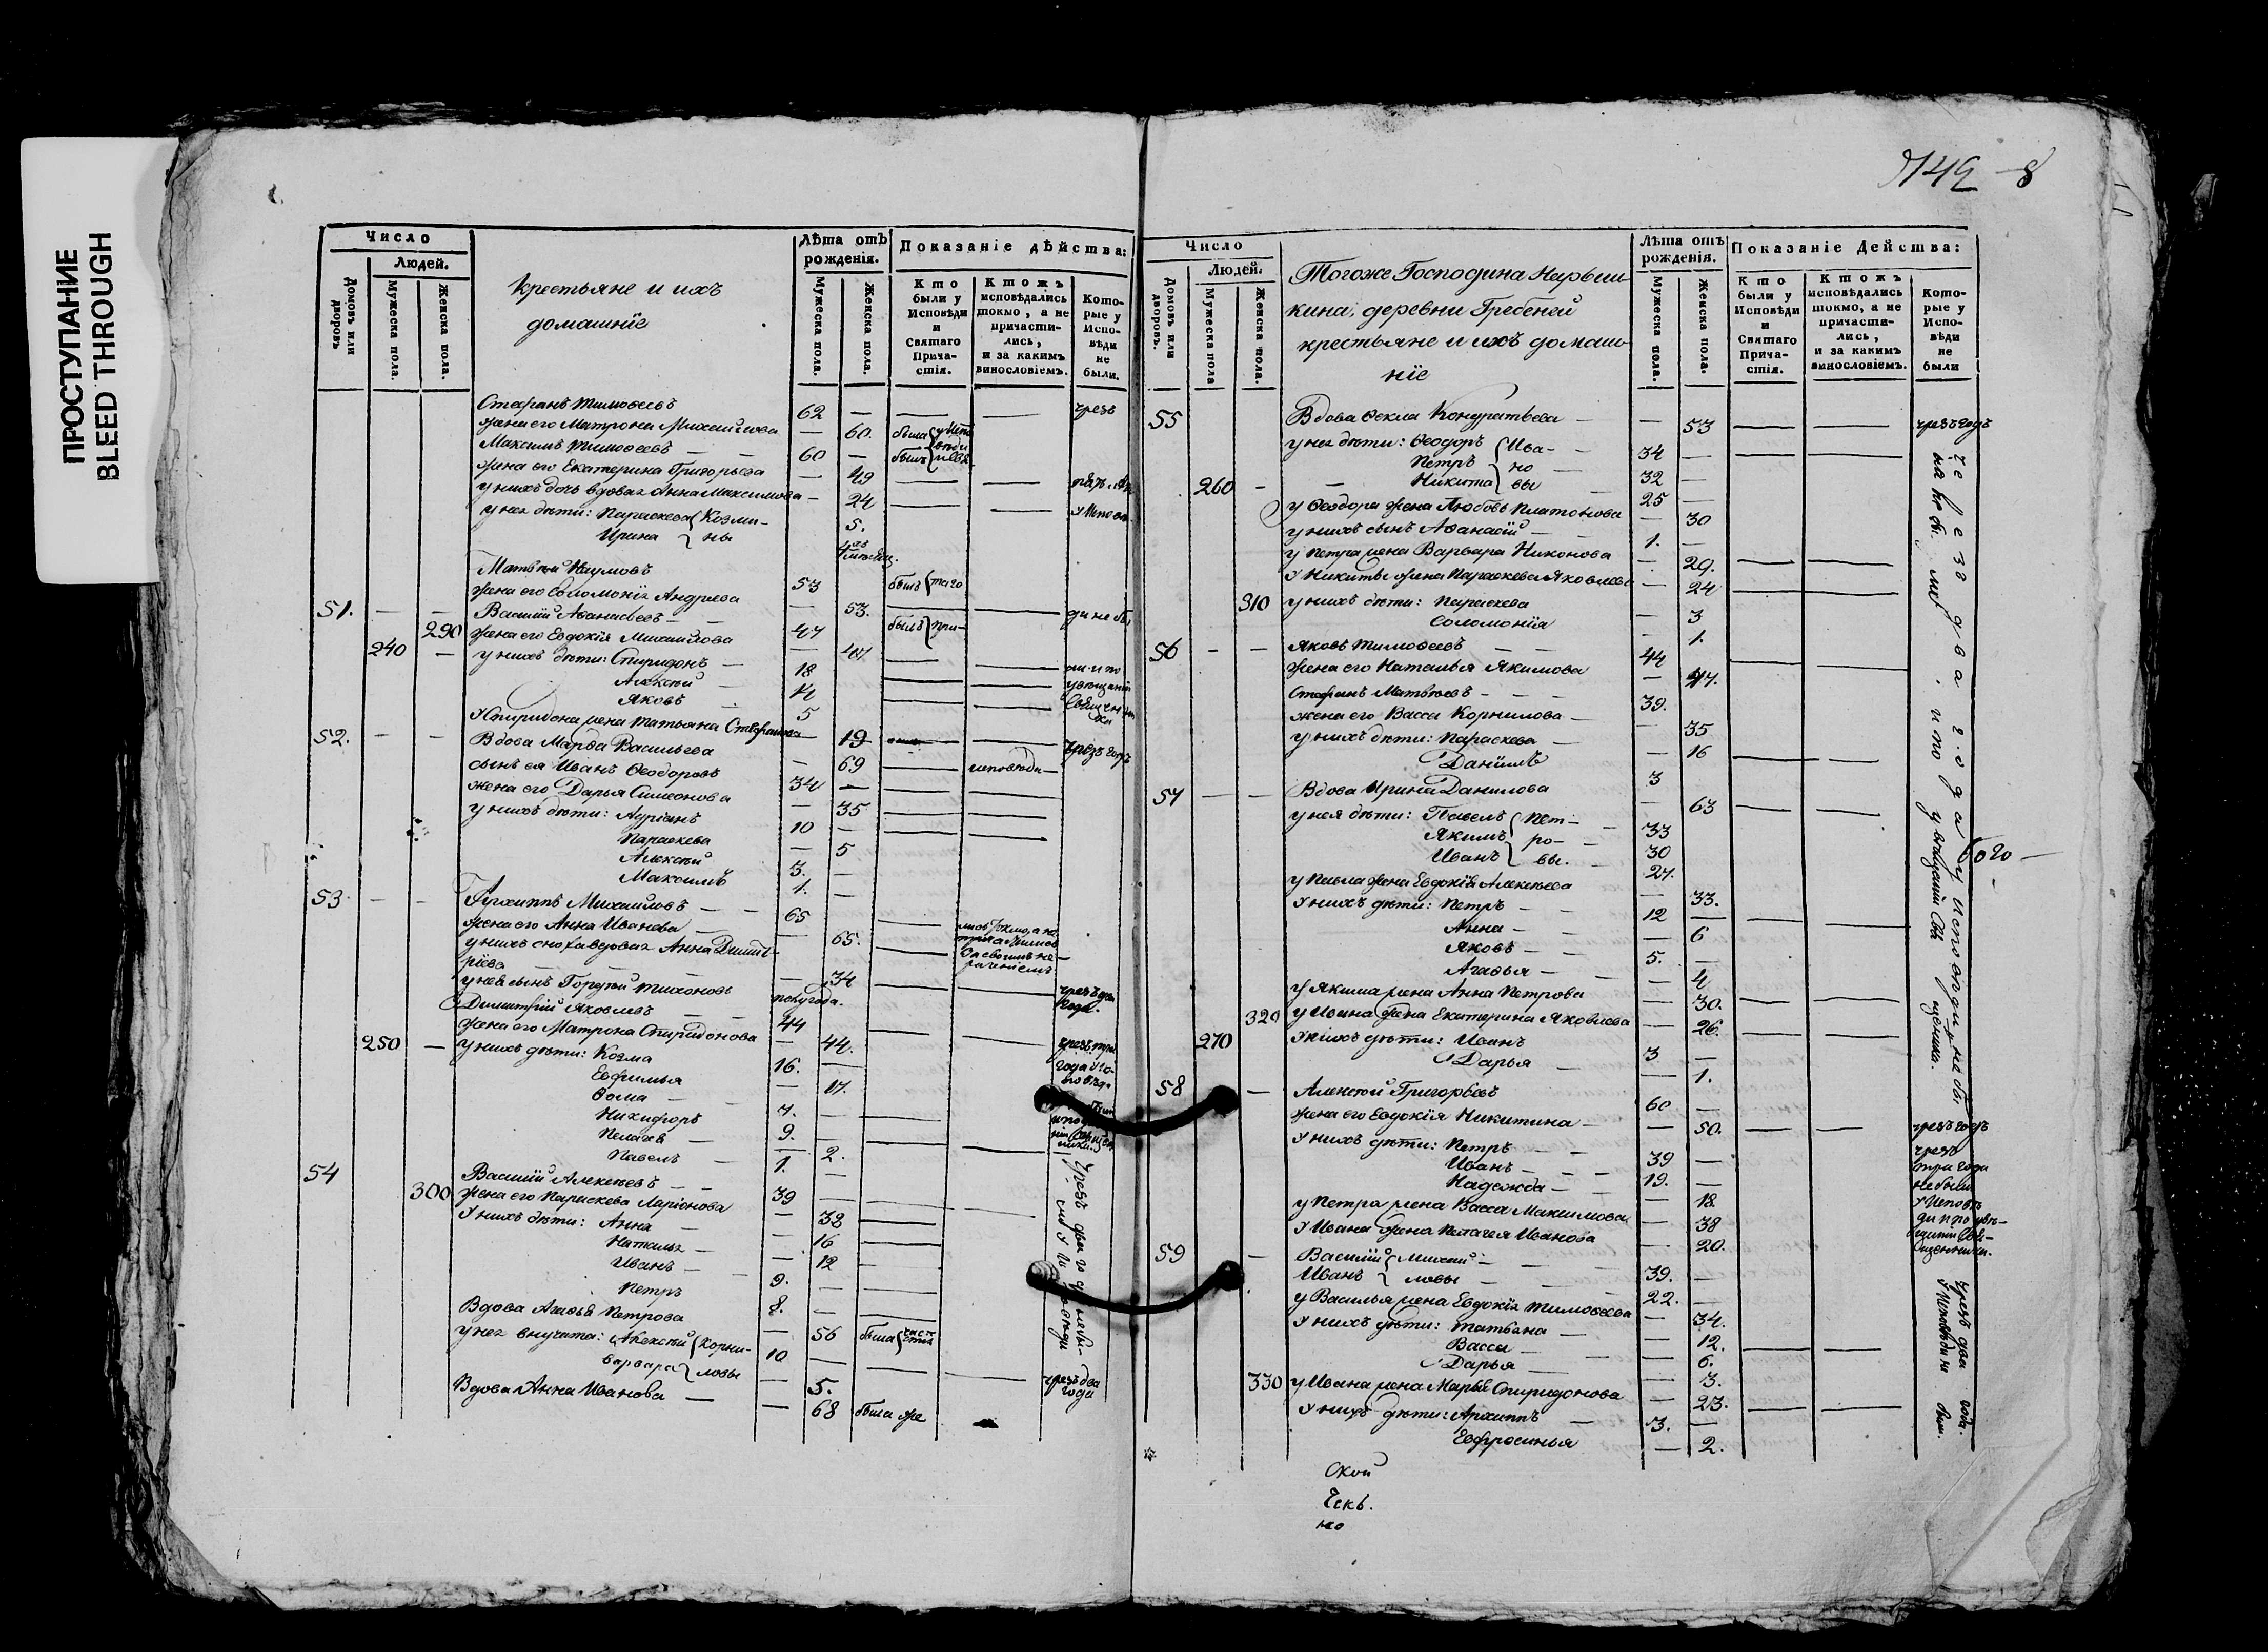 ПРОСТУПАНИЕ
BLEED THROUGH
Число
Людей.
Домовъ или дворовъ.
Мужеска пола.
Женска пола.
Крестьяне и ихъ
домашнїе
Лѣта отъ рожденія.
Мужеска пола.
Женска пола.
Показаніе дѣйства:
Кто были у Исповѣди и Святаго Причастія.
Ктожъ исповѣдались токмо, а не причастились, и за какимъ винословіемъ.
Которые у Исповѣди не были.
Стефанъ Тимофеевъ 62 — чрезъ
жена его Матрона Михайлова — 60. была
Максимъ Тимофеевъ 60 — былъ
жена его Екатерина Григорьева — 49
у нихъ дочь вдовая Анна Максимова — 24
у нея дѣти: Параскева Козми- 5.
Ирина ны
Матвѣй Наумовъ 53 былъ
жена его Соломонїя Андреева — 53.
51. — — Василїй Аѳанасьевъ 47 былъ
290 жена его Евдокїя Михайлова — 47
240 — у нихъ дѣти: Спиридонъ 18
Алексѣй 14
Яковъ 5
У Спиридона жена Татьяна Стефанова — 19
52. — — Вдова Марѳа Васильева — 69 чрезъ годъ
сынъ ея Иванъ Ѳеодоровъ 34 —
жена его Дарья Симеонова — 35
у нихъ дѣти: Адрїанъ 10 —
Параскева — 5
Алексѣй 3. —
Максимъ 1. —
53 — — Архиппъ Михайловъ 65
жена его Анна Иванова — 65.
у нихъ сноха вдовая Анна Димит-
рїева — 34
у нея сынъ Гордѣй Тихоновъ полугода.
Димитрїй Яковлевъ 44
жена его Матрона Спиридонова — 44.
250 — у нихъ дѣти: Козма 16. —
Евфимья — 17.
Ѳома 7. —
Никифоръ 9. —
Пелагея — 2.
Павелъ 1. —
54 Василїй Алексѣевъ 39 —
300 жена его Параскева Ларїонова — 38
У нихъ дѣти: Анна — 16
Наталья — 12
Иванъ 9. —
Петръ 8. —
Вдова Агафья Петрова — 56 была
у нея внучата: Алексѣй Корни- 10 —
Варвара ловы — 5.
Вдова Анна Иванова — 68 была же
чрезъ два года
7142 8
Число
Людей.
Домовъ или дворовъ.
Мужеска пола
Женска пола.
Тогоже Господина Нарыш-
кина, деревни Гребеней
крестьяне и ихъ домаш-
нїе
Лѣта отъ рожденія.
Мужеска пола.
Женска пола.
Показаніе Действа:
Кто были у Исповѣди и Святаго Причастія.
Ктожъ исповѣдались токмо, а не причастились, и за какимъ винословіемъ.
Которые у Исповѣди не были
55 Вдова Ѳекла Кондратьева — 53 чрезъ годъ
у нея дѣти: Ѳеодоръ Ива- 34 —
Петръ но 32 —
260 — Никита вы 25 —
у Ѳеодора жена Любовь Платонова — 30
у нихъ сынъ Аѳанасїй 1. —
у Петра жена Варвара Никонова — 29.
У Никиты жена Параскева Яковлева — 24
310 у нихъ дѣти: Параскева — 3
Соломонїя — 1.
56 — — Яковъ Тимофеевъ 44
жена его Наталья Якимова — 47.
Стефанъ Матвѣевъ 39.
жена его Васса Корнилова — 35
у нихъ дѣти: Параскева — 16
Данїилъ 3
57 — — Вдова Ирина Данилова — 63
у нея дѣти: Павелъ Пет- 33
Якимъ ро- 30
Иванъ вы. 27.
у Павла жена Евдокїя Алексѣева — 33.
У нихъ дѣти: Петръ 12 —
Анна — 6
Яковъ 5. —
Агафья — 4
у Якима жена Анна Петрова — 30.
320 у Ивана жена Екатерина Яковлева — 26.
270 У нихъ дѣти: Иванъ 3 —
Дарья — 1.
58 — Алексѣй Григорьевъ 60 —
жена его Евдокїя Никитина — 50. чрезъ годъ
У нихъ дѣти: Петръ 39 —
Иванъ 19. —
Надежда — 18.
у Петра жена Васса Максимова — 38
У Ивана жена Пелагея Иванова — 20.
59 — Василїй Михай- 39. —
Иванъ ловы 22. —
у Василья жена Евдокїя Тимофеева — 34.
У нихъ дѣти: Татьяна — 12.
Васса — 6.
Дарья — 3.
330 у Ивана жена Марья Спиридонова — 23.
У нихъ дѣти: Архиппъ 3. —
Евфросинья — 2.
чрезъ
три года
не были